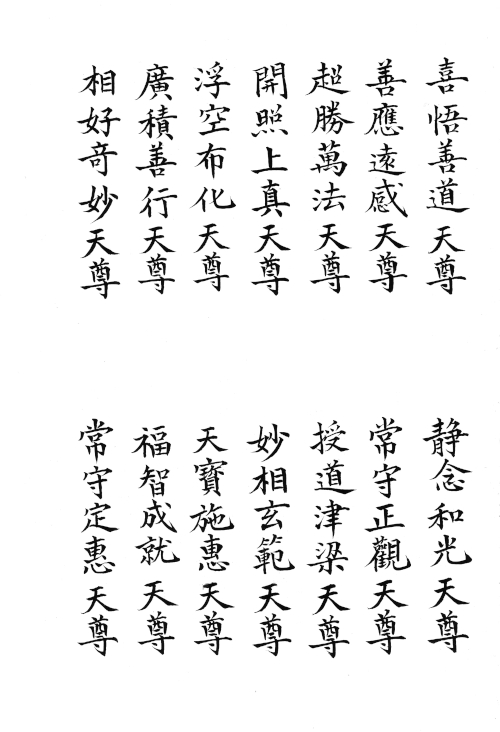 喜悟善道天尊
善應遠感天尊
超勝萬法天尊
開照上真天尊
浮空布化天尊
廣積善行天尊
相好奇妙天尊
靜念和光天尊
常守正觀天尊
授道津梁天尊
妙相玄範天尊
天寶施惠天尊
福智成就天尊
常守定惠天尊